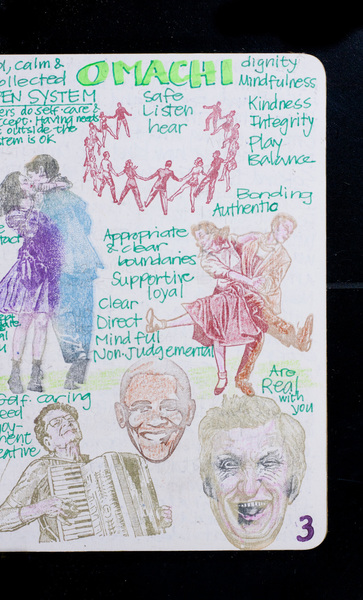 calm &
OMACHI
dignity
collected
Mindfulness
EN SYSTEM
safe
Kindness
ers do self-care &
Listen
Integrity
cept. Having needs
hear
Play
outside the
Balance
stem is OK
Bonding
Authentic
Appropriate
& clear
boundaries
Supportive
loyal
Clear
Direct
Mindful
Non-Judgemental
Are
Real
with
you
Self-caring
eed
oy-
ment
eative
3